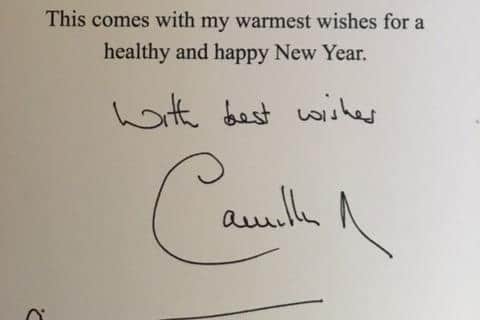 This comes with my warmest wishes for a
healthy and happy New Year.
With best wishes
Camilla R